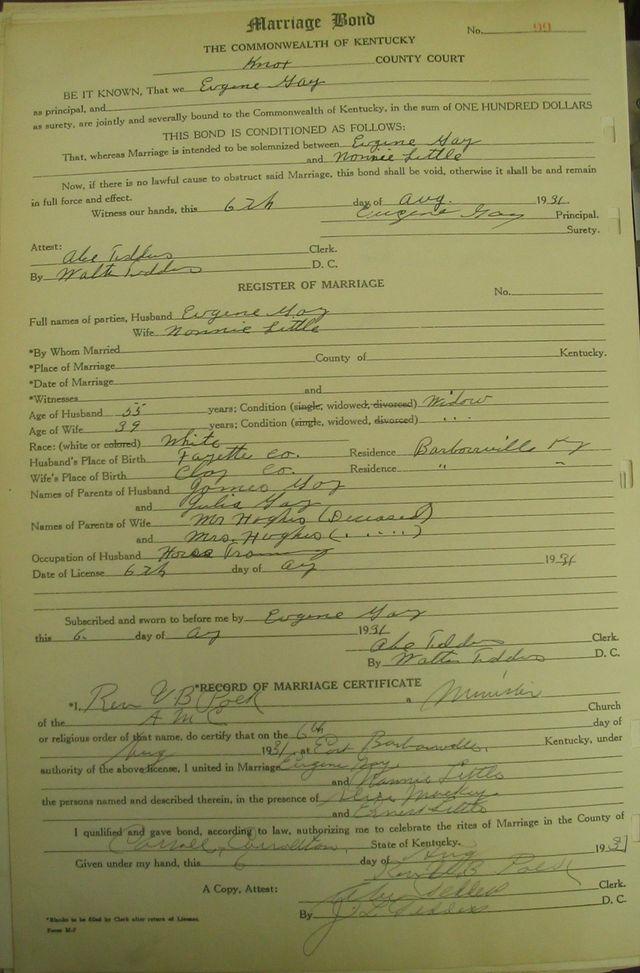 Marriage Bond
No. 99
THE COMMONWEALTH OF KENTUCKY
Knox COUNTY COURT
BE IT KNOWN, That we Eugene Gay
as principal, and
as surety, are jointly and severally bound to the Commonwealth of Kentucky, in the sum of ONE HUNDRED DOLLARS
THIS BOND IS CONDITIONED AS FOLLOWS:
That, whereas Marriage is intended to be solemnized between Eugene Gay
and Nonnie Little
Now, if there is no lawful cause to obstruct said Marriage, this bond shall be void, otherwise it shall be and remain
in full force and effect.
Witness our hands, this 6th day of Aug. 1931
Eugene Gay Principal.
Surety.
Attest:
Abe Tedders Clerk.
By Walter Tedders D. C.
REGISTER OF MARRIAGE
No.
Full names of parties, Husband Eugene Gay
Wife Nonnie Little
*By Whom Married
*Place of Marriage County of Kentucky.
*Date of Marriage
*Witnesses and
Age of Husband 55 years; Condition (single, widowed, divorced) Widow
Age of Wife 39 years; Condition (single, widowed, divorced) " "
Race: (white or colored) White
Husband's Place of Birth Fayette Co. Residence Barbourville Ky
Wife's Place of Birth Clay Co. Residence " "
Names of Parents of Husband Gay
and Julia Gay
Names of Parents of Wife Mr Hughes (Deceased)
and Mrs. Hughes (" ")
Occupation of Husband
Date of License 6th day of Aug 1931
Subscribed and sworn to before me by Eugene Gay
this 6. day of Aug 1931
Abe Tedders Clerk.
By Walter Tedders D. C.
*RECORD OF MARRIAGE CERTIFICATE
*I, Rev V B Polk a Minister
of the Church
or religious order of that name, do certify that on the 6th day of
Aug 1931, at East Barbourville, Kentucky, under
authority of the above license, I united in Marriage Eugene Gay
and Nannie Little
the persons named and described therein, in the presence of
and Ernest Little
I qualified and gave bond, according to law, authorizing me to celebrate the rites of Marriage in the County of
Carroll, Carrollton, State of Kentucky.
Given under my hand, this 6 day of Aug 1931
Rev V. B. Polk
A Copy, Attest: Abe Tedders Clerk.
By Tedders D. C.
*Blanks to be filled by Clerk after return of License.
Form M-7